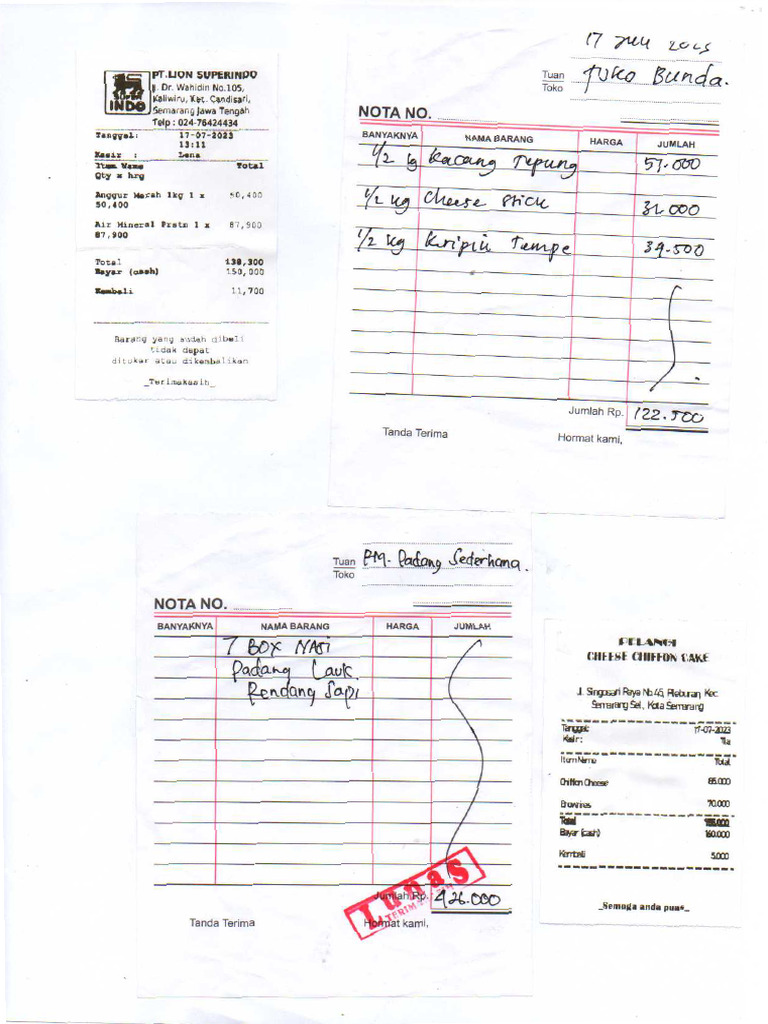 SUPER
INDO
PT.LION SUPERINDO
Jl. Dr. Wahidin No.105,
Kaliwiru, Kec. Candisari,
Semarang Jawa Tengah
Telp : 024-76424434
Tanggal: 17-07-2023
13:11
Kasir : Lena
Item Name Total
Qty x hrg
Anggur Merah 1kg 1 x 50,400
50,400
Air Mineral Prstn 1 x 87,900
87,900
Total 138,300
Bayar (cash) 150,000
Kembali 11,700
Barang yang sudah dibeli
tidak dapat
ditukar atau dikembalikan
_Terimakasih_
17 Juli 2023
Tuan
Toko
Toko Bunda.
NOTA NO.
BANYAKNYA NAMA BARANG HARGA JUMLAH
1/2 kg Kacang Tepung 57.000
1/2 kg Cheese Stick 31.000
1/2 kg Kripik Tempe 34.500
Jumlah Rp. 122.500
Tanda Terima Hormat kami,
Tuan
Toko
RM. Padang Sederhana.
NOTA NO.
BANYAKNYA NAMA BARANG HARGA JUMLAH
7 BOX NASI
Padang Lauk
Rendang Sapi
Jumlah Rp. 426.000
Lunas
TERIMA
Tanda Terima Hormat kami,
PELANGI
CHEESE CHIFFON CAKE
Jl. Singosari Raya No.45, Pleburan, Kec.
Semarang Sel., Kota Semarang
Tanggal: 17-07-2023
Kasir: Tia
Item Name Total
Chiffon Cheese 85.000
Brownies 70.000
Total 155.000
Bayar (cash) 160.000
Kembali 5.000
_Semoga anda puas_